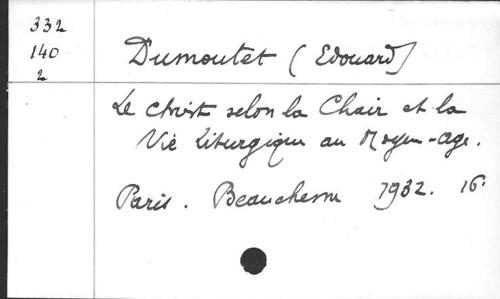 332
140
2
Dumoutet (Edouard)
Le christ selon la Chair et la
Vie Liturgique au Moyen-age.
Paris. Beauchesne 1932. 16.